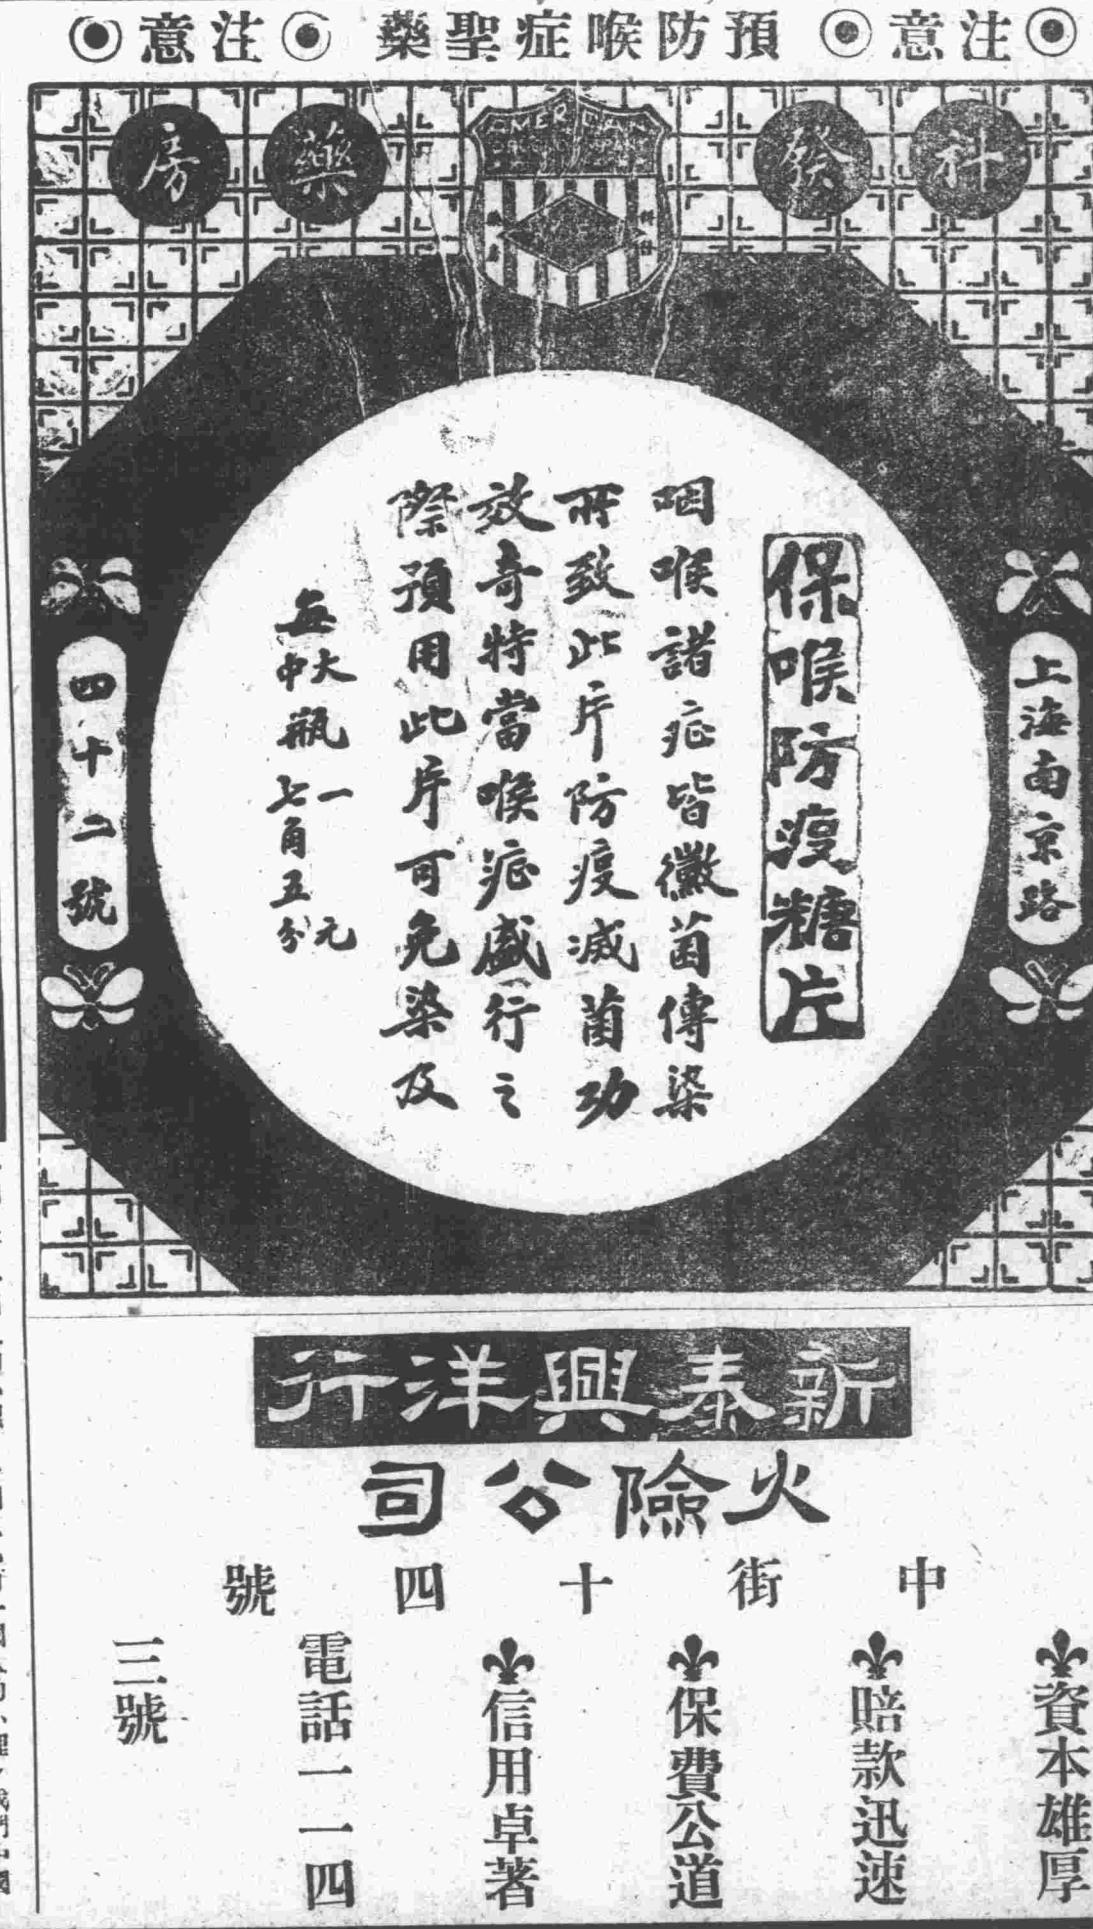 注意 預防喉症聖藥 注意
科發藥房
AMERICAN
上海南京路
四十二號
保喉防疫糖片
咽喉諸症皆黴菌傳染
所致此片防疫滅菌功
效奇特當喉症盛行之
際預用此片可免染及
每大瓶一元
中七角五分
新泰興洋行
火險公司
中街十四號
資本雄厚
賠款迅速
保費公道
信用卓著
電話一一四
三號